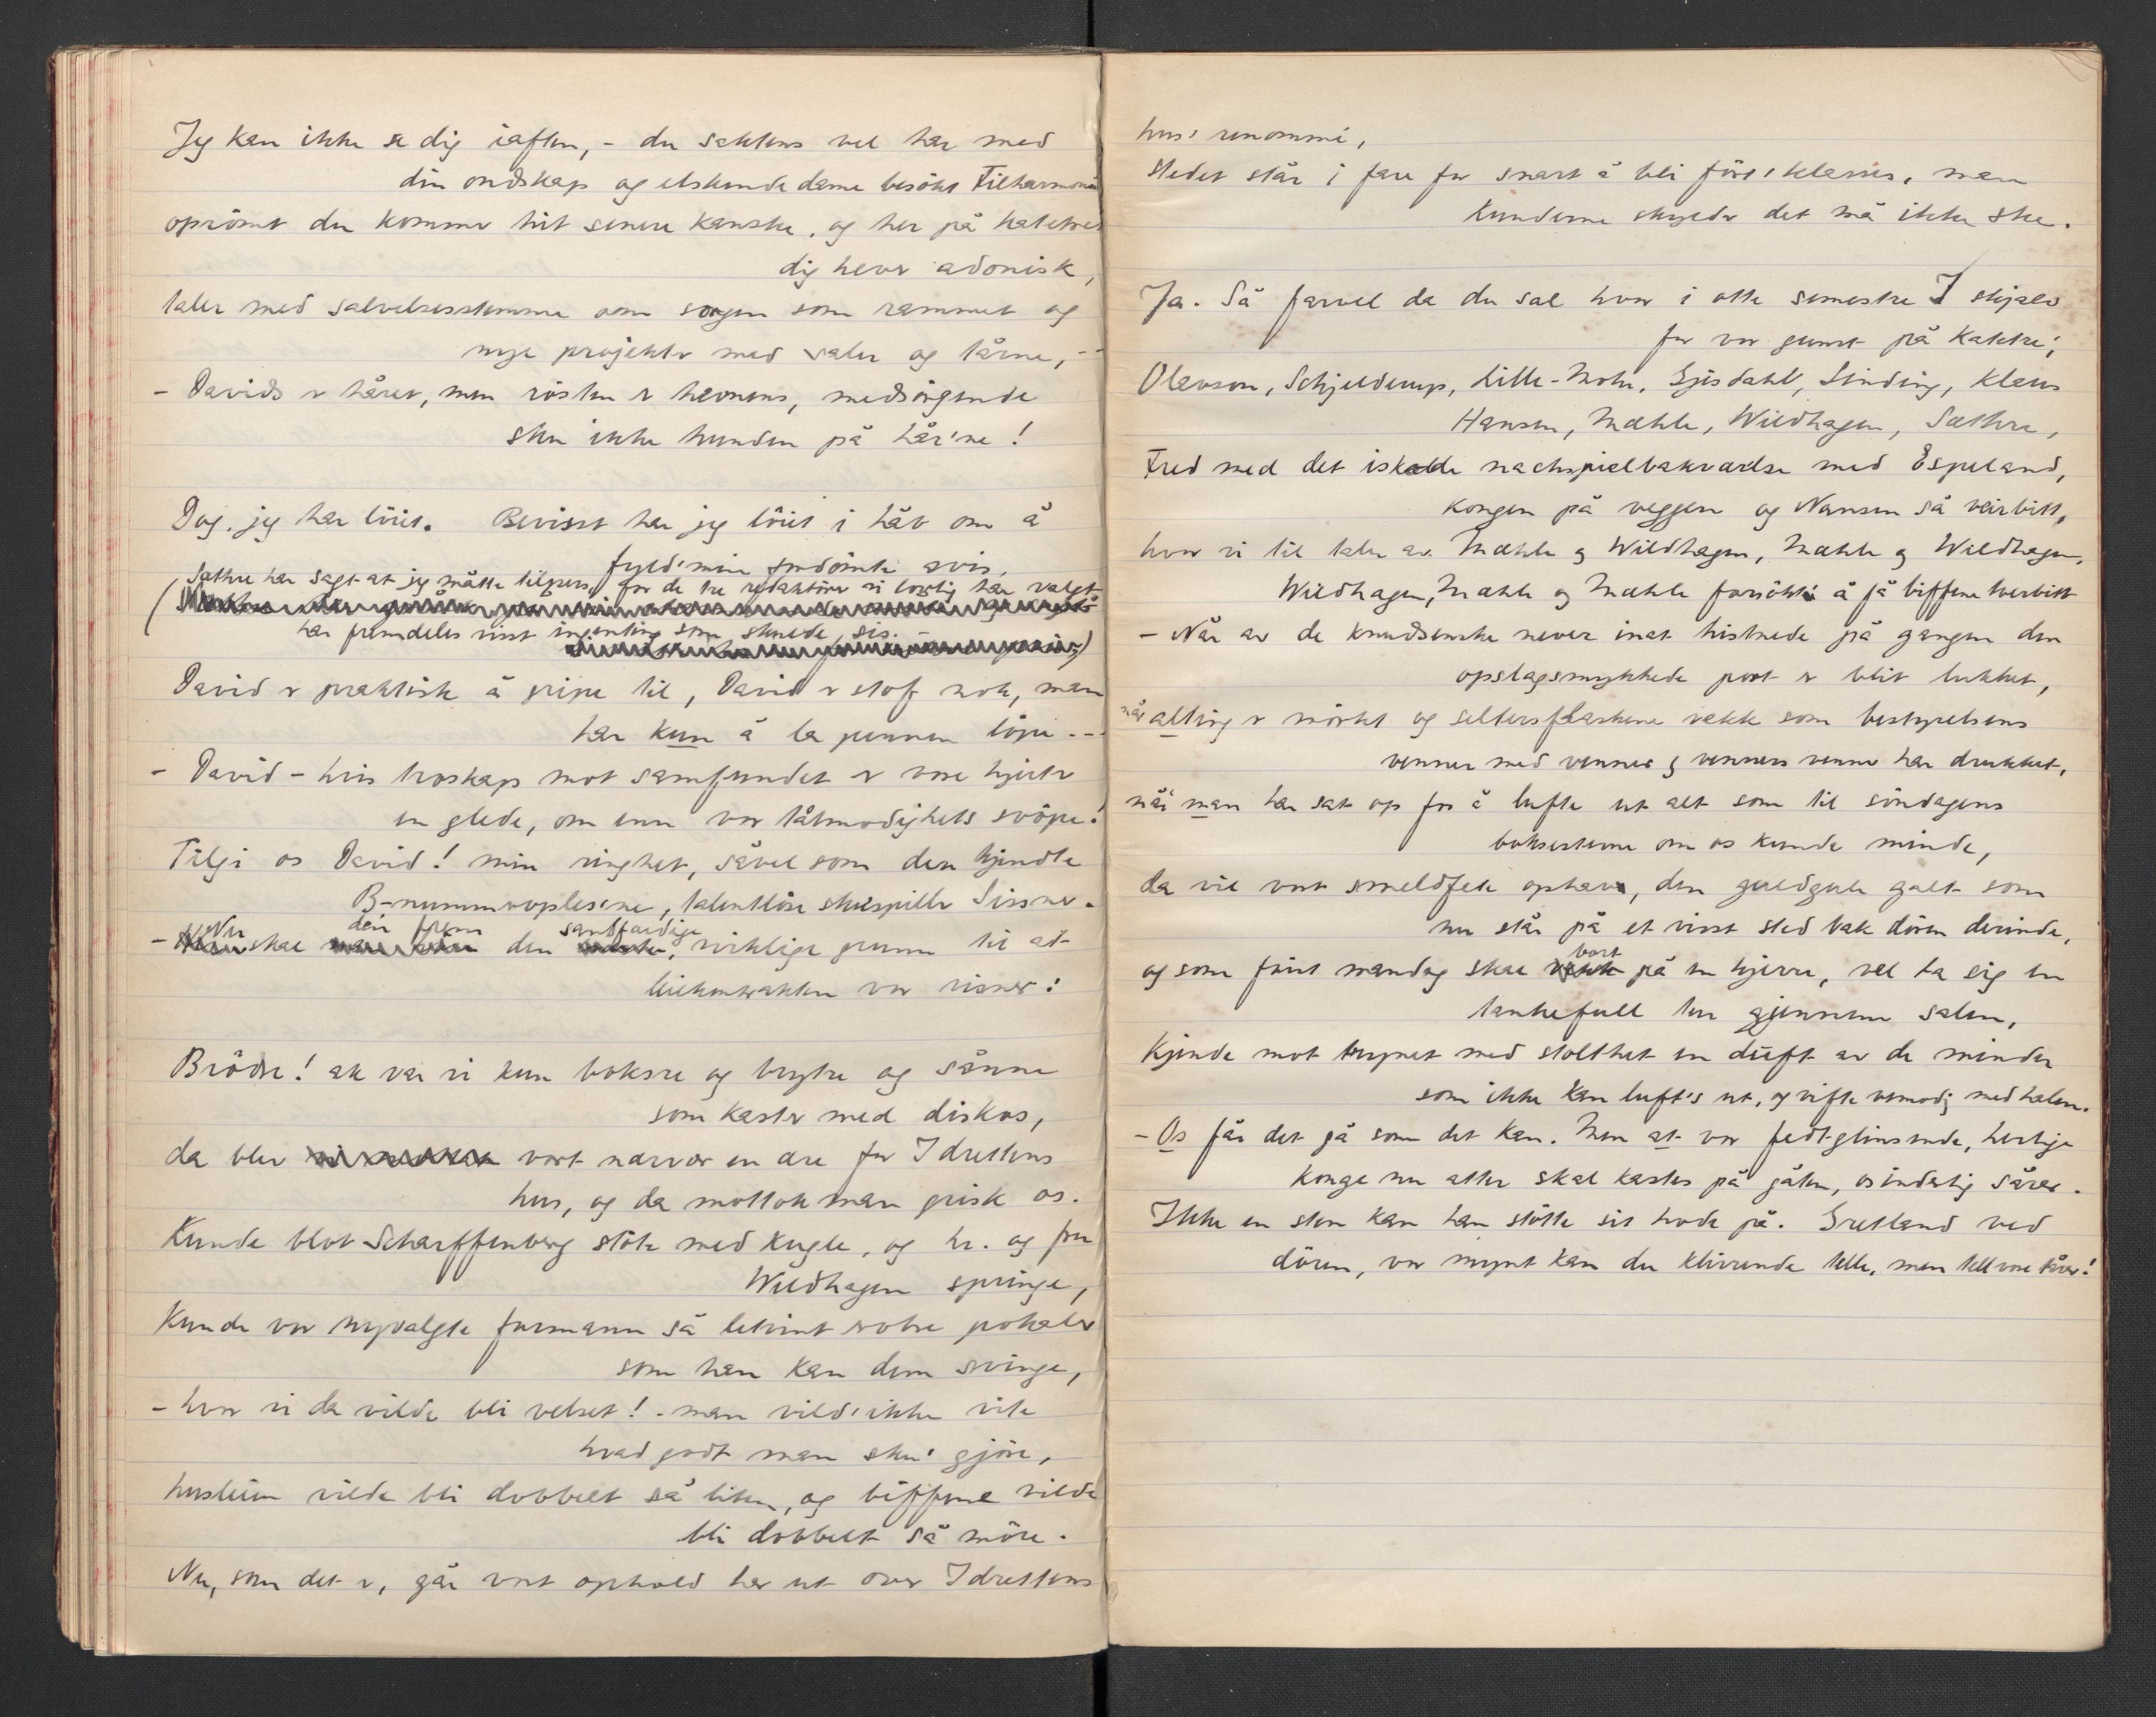 Jeg kan ikke se dig iaften, - du saktens vel har med
din ondskap og elskende dame besökt Filharmonien
oprömt du kommer hit senere kanske, og her på katetret
dig hever adonisk,
taler med salvelsesstemme om sorgen som rammet og
nye projekter med saler og tårne, --
- Davids er håret, men rösten er hevnens, medsörgende
sku ikke hunden på hår'ne!
Dog. jeg har löiet. Bevisst har jeg löiet i håb om å
fyld' min fordömte avis.
(Sæthre har sagt at jeg måtte tilpers, for de tre redaktörer vi lovlig har valgt
har fremdeles visst ingenting som skuede sis. - )
David er praktisk å gripe til, David er stof nok, man
har kun å la pennen löpe. --
- David - hvis troskap mot samfundet er vore hjerter
en glede, om enn vor tålmodighets svöpe!
Tilgi os David! min ringhet, såvel som den kjendte
B-nummeroplæs'ne, talentlöse skuespiller Sissner.
- Nu skal den frem den sandfærdige, virkelige grunn til at
leiekontrakten vor risner:
Brödre! ak var vi kun boksere og brytere og sånne
som kaster med diskos,
da blev vort nærvær en ære for Idrettens
hus, og da mottok man grisk os.
Kunde blot Scharffenberg stöte med kugle, og hr. og fru
Wildhagen springe,
Kunde vor nyvalgte formann så letvint erobre pokaler
som han kan dem svinge,
- hvor vi da vilde bli velset! - man vild' ikke vite
hvad godt man sku' gjöre,
husleien vilde bli dobbelt så liten, og biffene vilde
bli dobbelt så möre.
Nu, som det er, går vort ophold her ut over Idrettens
hus' renommé,
stedet står i fare for snart å bli förs'klasses, men
kunderne skyldr det må ikke ske.
Ja. Så farvel da du sal hvor i otte semestre I skjalv
for vor gunst på Kakkré,
Olavson, Schjelderup, Lille-Mohr, Gjisdahl, Sinding, Klaus
Hansen, Mæhle, Wildhagen, Sæthre,
Fred med det iskolde nachspielbakværelse med Espeland,
kongen på veggen og Nansen så veirbitt,
hvor vi til taler av Mæhle og Wildhagen, Mæhle og Wildhagen,
Wildhagen, Mæhle og Mæhle forsökte å få biffene tverbitt
- Når av de knudsenske never inat tristnede på gangen den
opslagsmykkede port er blit lukket,
når alting er mörkt og seltersflaskene vække som bestyrelsens
venner med venner og venners venner har drukket,
når man har sat op for å lufte ut alt som til söndagens
boksestevne om os kunde minde,
da vil vort smeldfete ophav, den guldgule galt som
nu står på et visst sted bak dören derinde,
og som först mandag skal bort på en kjerre, vel ta sig en
tankefull tur gjennem salen,
Kjende mot trynet med stolthet en duft av de minder
som ikke kan luft's ut, og vifte vemodig med halen.
- Os får det gå som det kan. Men at vor fedtglinsende, herlige
konge nu atter skal kastes på gåten, os inderlig sårer.
Ikke en sten kan han stötte sit hode på. Gretland ved
dören, vor mynt kan du klirrende telle, men tell vore tårer!